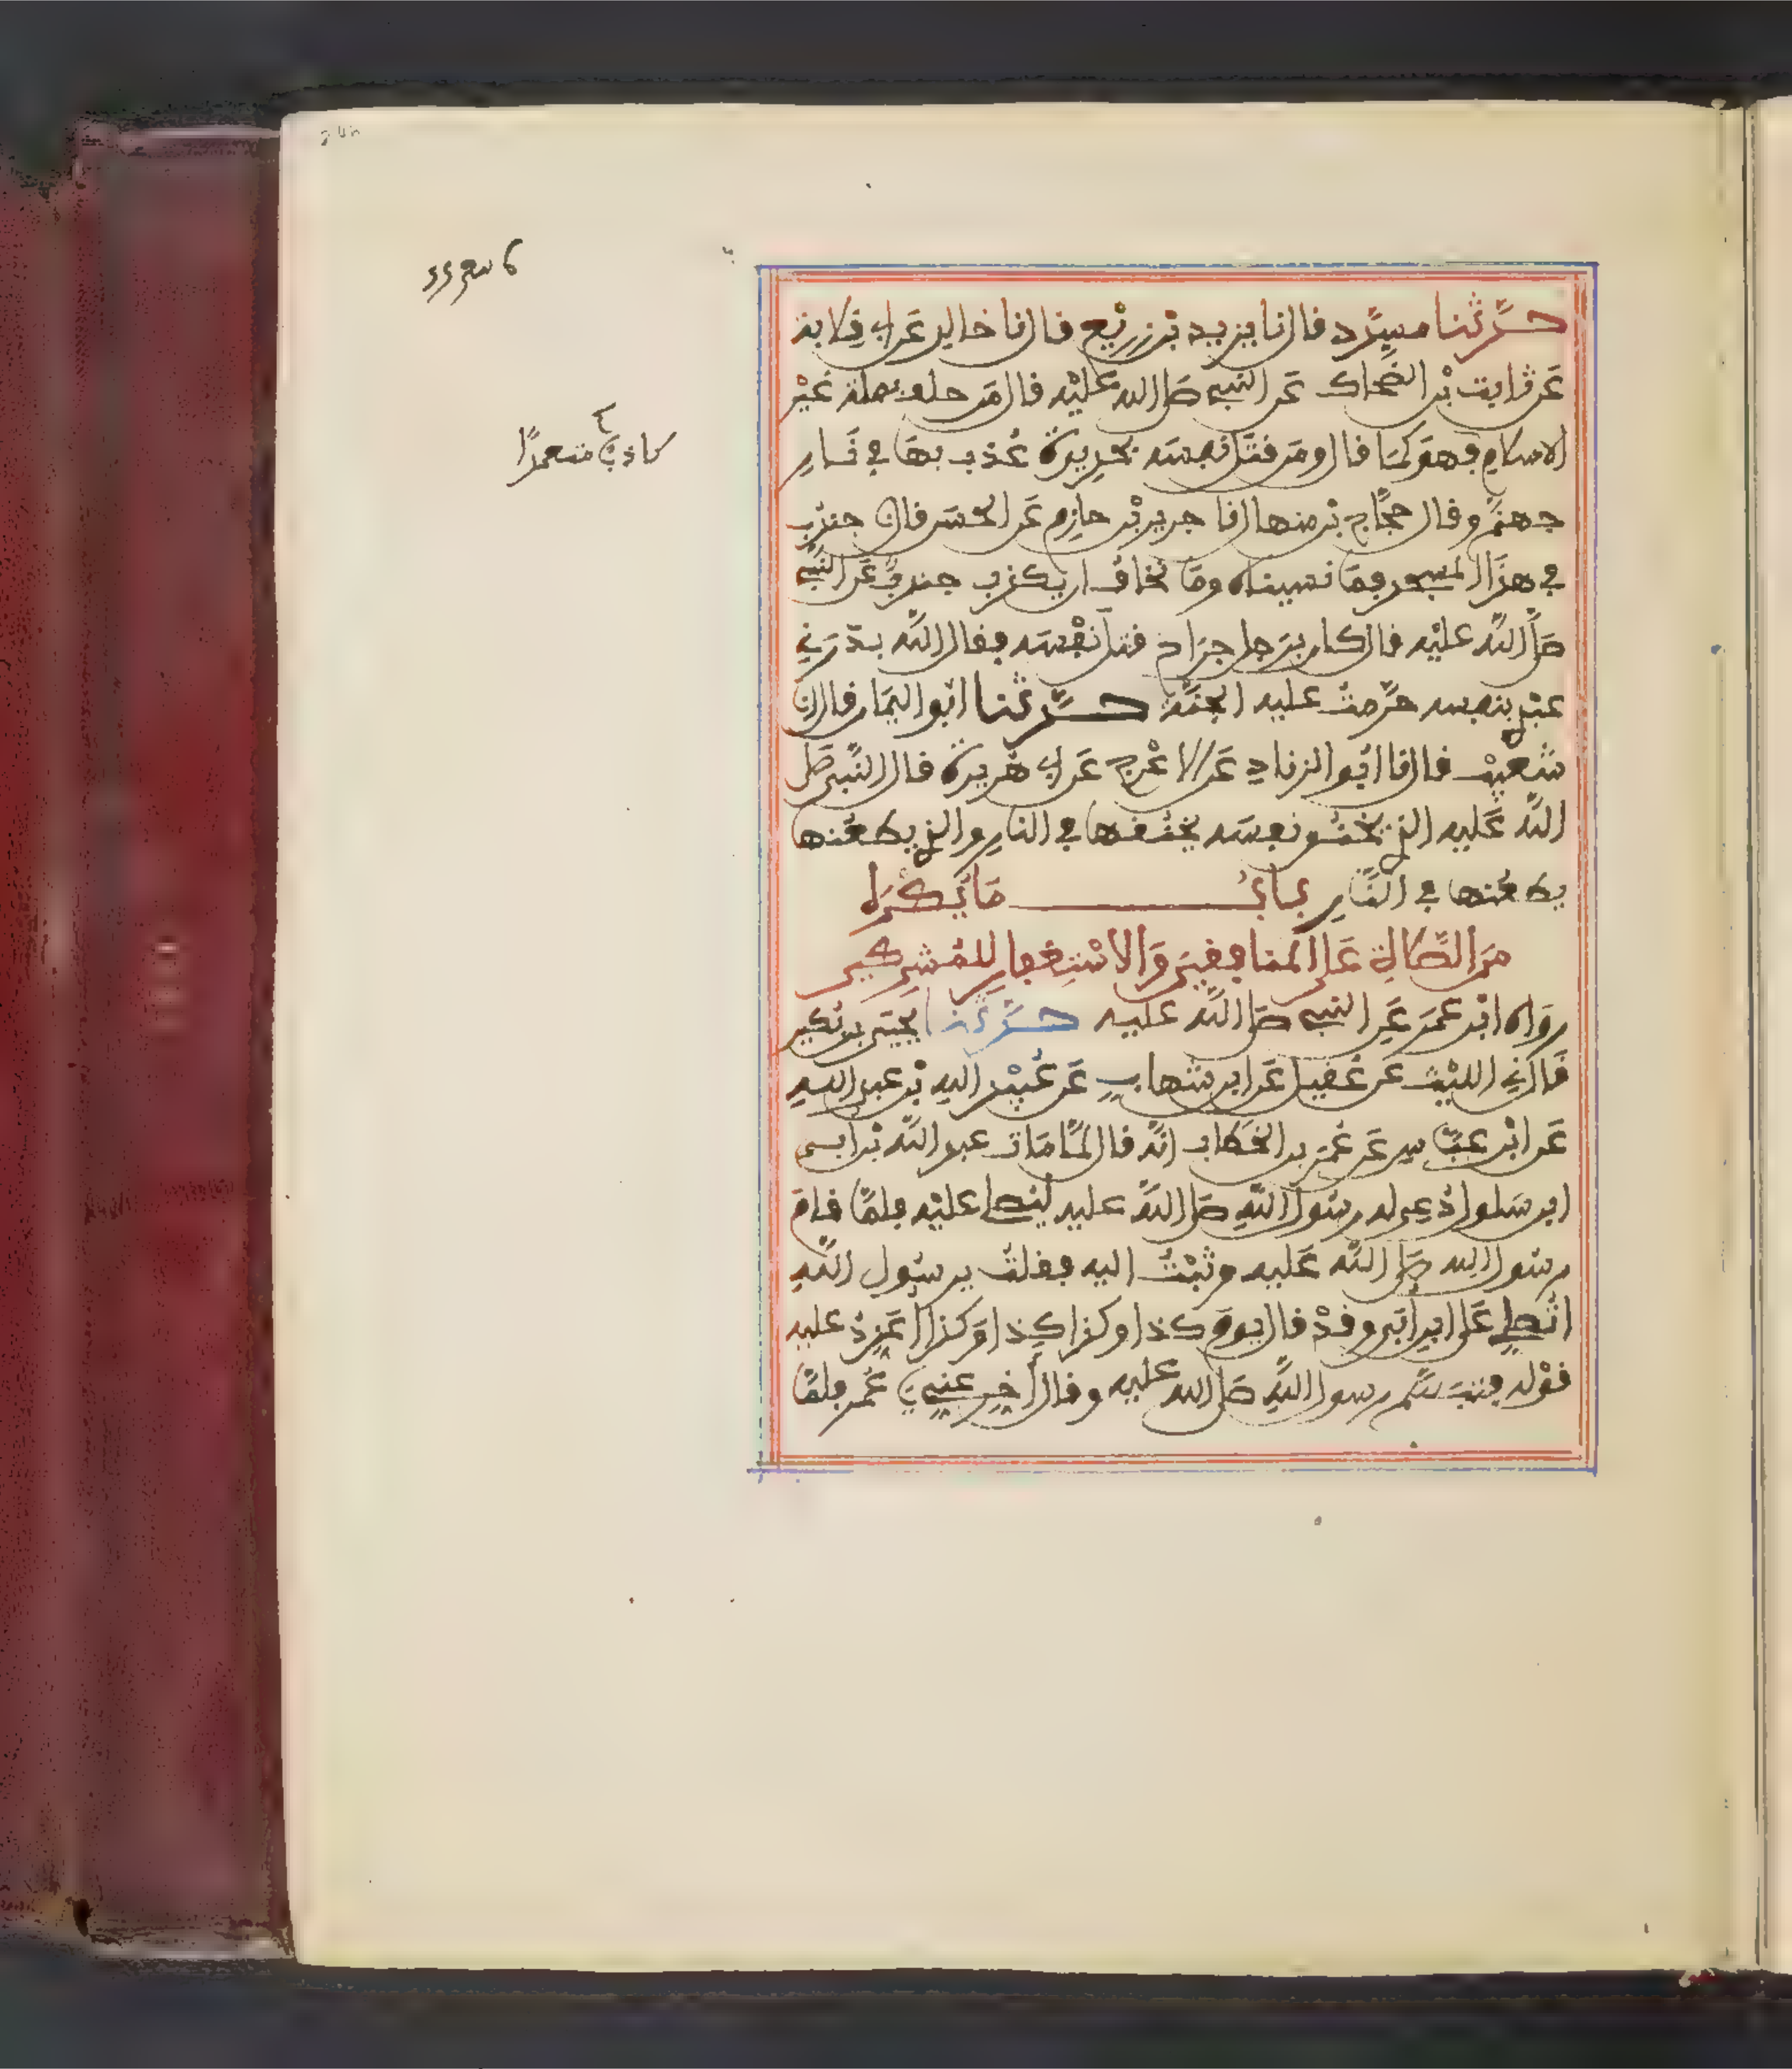 حدثنا مسدد قال نا يزيد بن زريع قال نا خالد عن ابي قلابة
عن ثابت بن الضحاك عن النبي صلى الله عليه قال من حلف بملة غير
الاسلام فهو كما قال ومن قتل نفسه بحديدة عذب بها في نار
جهنم وقال حجاج بن منهال نا جرير بن حازم عن الحسن قال نا جندب
في هذا المسجد فما نسيناه وما نخاف ان يكذب جندب عن النبي
صلى الله عليه قال كان برجل جراح قتل نفسه فقال الله بدرني
عبدي بنفسه حرمت عليه الجنة حدثنا ابو اليمان قال انا
شعيب قال نا ابو الزناد عن الاعرج عن ابي هريرة قال النبي صلى
الله عليه الذي يخنق نفسه يخنقها في النار والذي يطعنها
يطعنها في النار باب ما يكره
من الصلاة على المنافقين والاستغفار للمشركين
رواه ابن عمر عن النبي صلى الله عليه حدثنا يحيى بن بكير
قال ني الليث عن عقيل عن ابن شهاب عن عبيد الله بن عبد الله
عن ابن عباس عن عمر بن الخطاب انه قال لما مات عبد الله بن ابي
ابن سلول دعي له رسول الله صلى الله عليه ليصلي عليه فلما قام
رسول الله صلى الله عليه وثبت اليه فقلت يرسول الله
اتصلي على ابن ابي وقد قال يوم كذا وكذا كذا وكذا اعدد عليه
قوله فتبسم رسول الله صلى الله عليه وقال اخر عني يا عمر فلما
كاذبا متعمدا